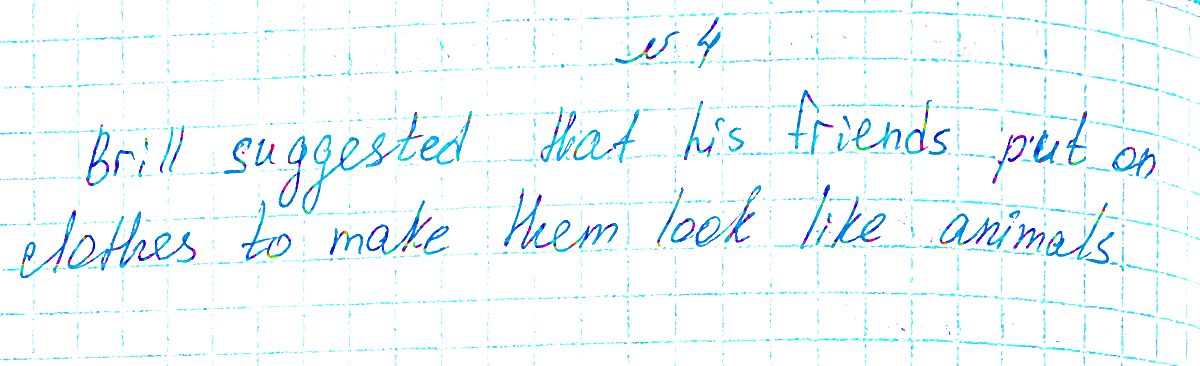 № 4
Brill suggested that his friends put on
clothes to make them look like animals.